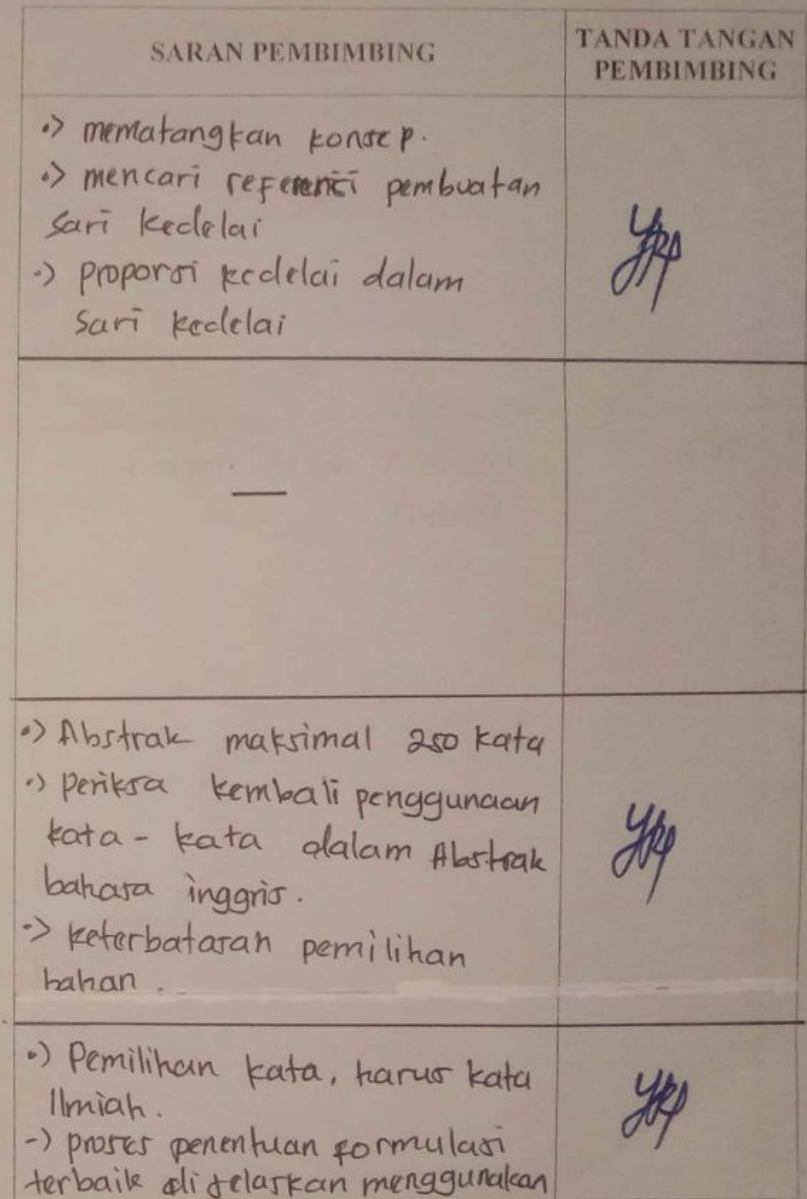 SARAN PEMBIMBING
TANDA TANGAN
PEMBIMBING
•> mematangkan konsep.
•> mencari referensi pembuatan
sari kedelai
•) proporsi kedelai dalam
sari kedelai
—
•) Abstrak maksimal 250 kata
•) periksa kembali penggunaan
kata - kata dalam Abstrak
bahasa inggris.
•> keterbatasan pemilihan
bahan.
•) Pemilihan kata, harus kata
Ilmiah.
-) proses penentuan formulasi
terbaik dijelaskan menggunakan